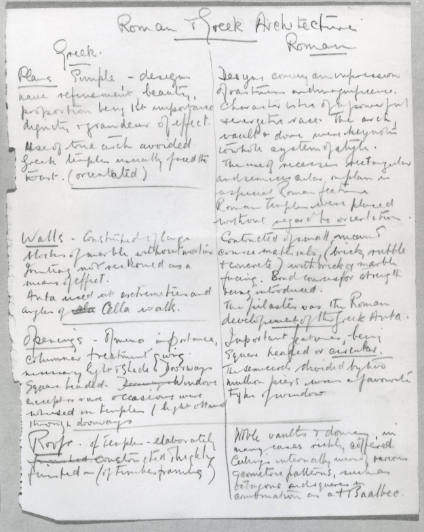 Roman & Greek Architecture
Greek.
Plans Simple - designs
have refinement beauty,
proportion being the importance
dignity & grandeur of effect.
Use of true arch avoided
Greek temples usually faced the
East. (orientated)
Walls - Constructed of large
blocks of marble without mortar
Jointing not reckoned as a
means of effect.
Anta used at extremities and
angles of Cella walls.
Openings - Of minor importance,
columnar treatment giving
necessary light & shade. Doorways
Square headed. Windows
except on rare occasions were
in temples (light obtained
through doorways
Roofs - of temples - elaborately
constructed & highly
finished - (of timber framing)
Roman
Designs convey an impression
of vastness and magnificence.
Characteristics of a powerful
energetic race. The arch,
vault & dome were keynote
to whole system of style.
The use of recesses rectangular
and semicircular, in plan is
a special Roman feature
Roman temples were placed
without regard to orientation.
Constructed of small, mean &
coarse materials, (brick, rubble
& concrete) with brick or marble
facing. Bond courses for strength
being introduced.
The pilasters was the Roman
development of the Greek Anta.
Important features, being
Square headed or circular.
The semicircle divided by two
mullion piers was a favourite
type of window
Noble vaults & domes, in
many cases richly coffered
Ceilings internally were various
geometric patterns, such as
octagons and squares in
combination as at Baalbec.